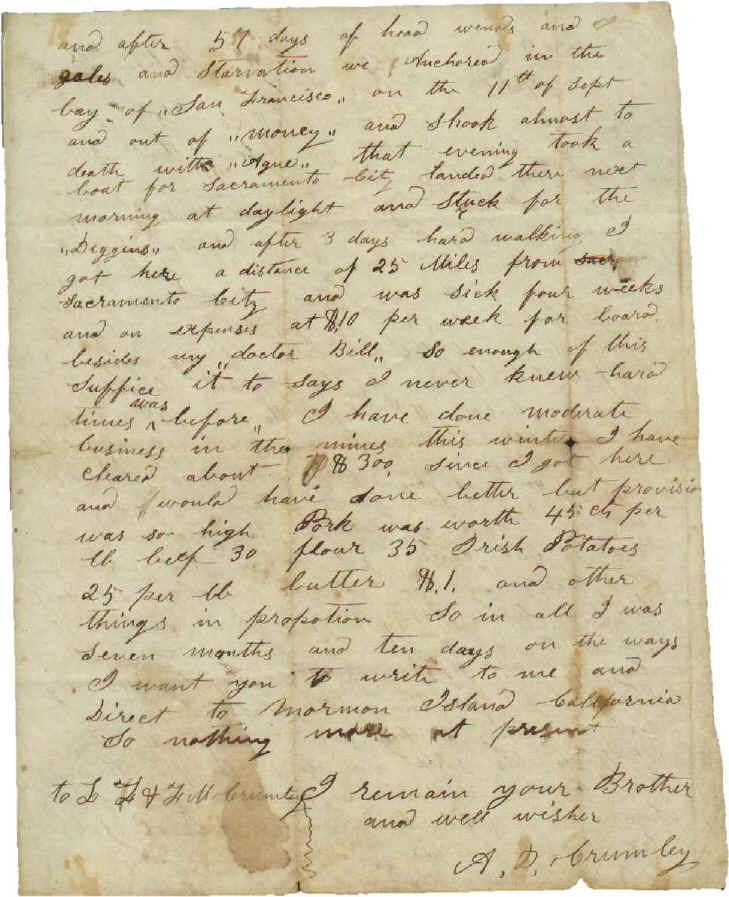 and after 57 days of head weinds and
gales and Starvation we Anchored in the
bay of „San Francisco„ on the 11th of Sept
and out of „money„ and Shook almost to
death with „Ague„ that evening took a
boat for Sacramento City landed there next
morning at daylight and Stuck for the
„Diggins„ and after 3 days hard walking I
got here a distance of 25 Miles from
Sacramento City and was Sick four weeks
and on expenses at $10 per week for board
besides my „doctor Bill„ So enough of this
Suffice it to says I never knew hard
times was before„ I have done moderate
business in the mines this winter I have
Cleared about $300, Since I got here
and would have done better but provision
was so high Pork was worth 45 cts per
lb beef 30 flour 35 Irish Potatoes
25 per lb butter $.1. and other
things in propotion So in all I was
Seven months and ten days on the ways
I want you to write to me and
Direct to Mormon Island California
So nothing more at present
to L H & F M Crumley I remain your Brother
and well wisher
A. D. Crumley